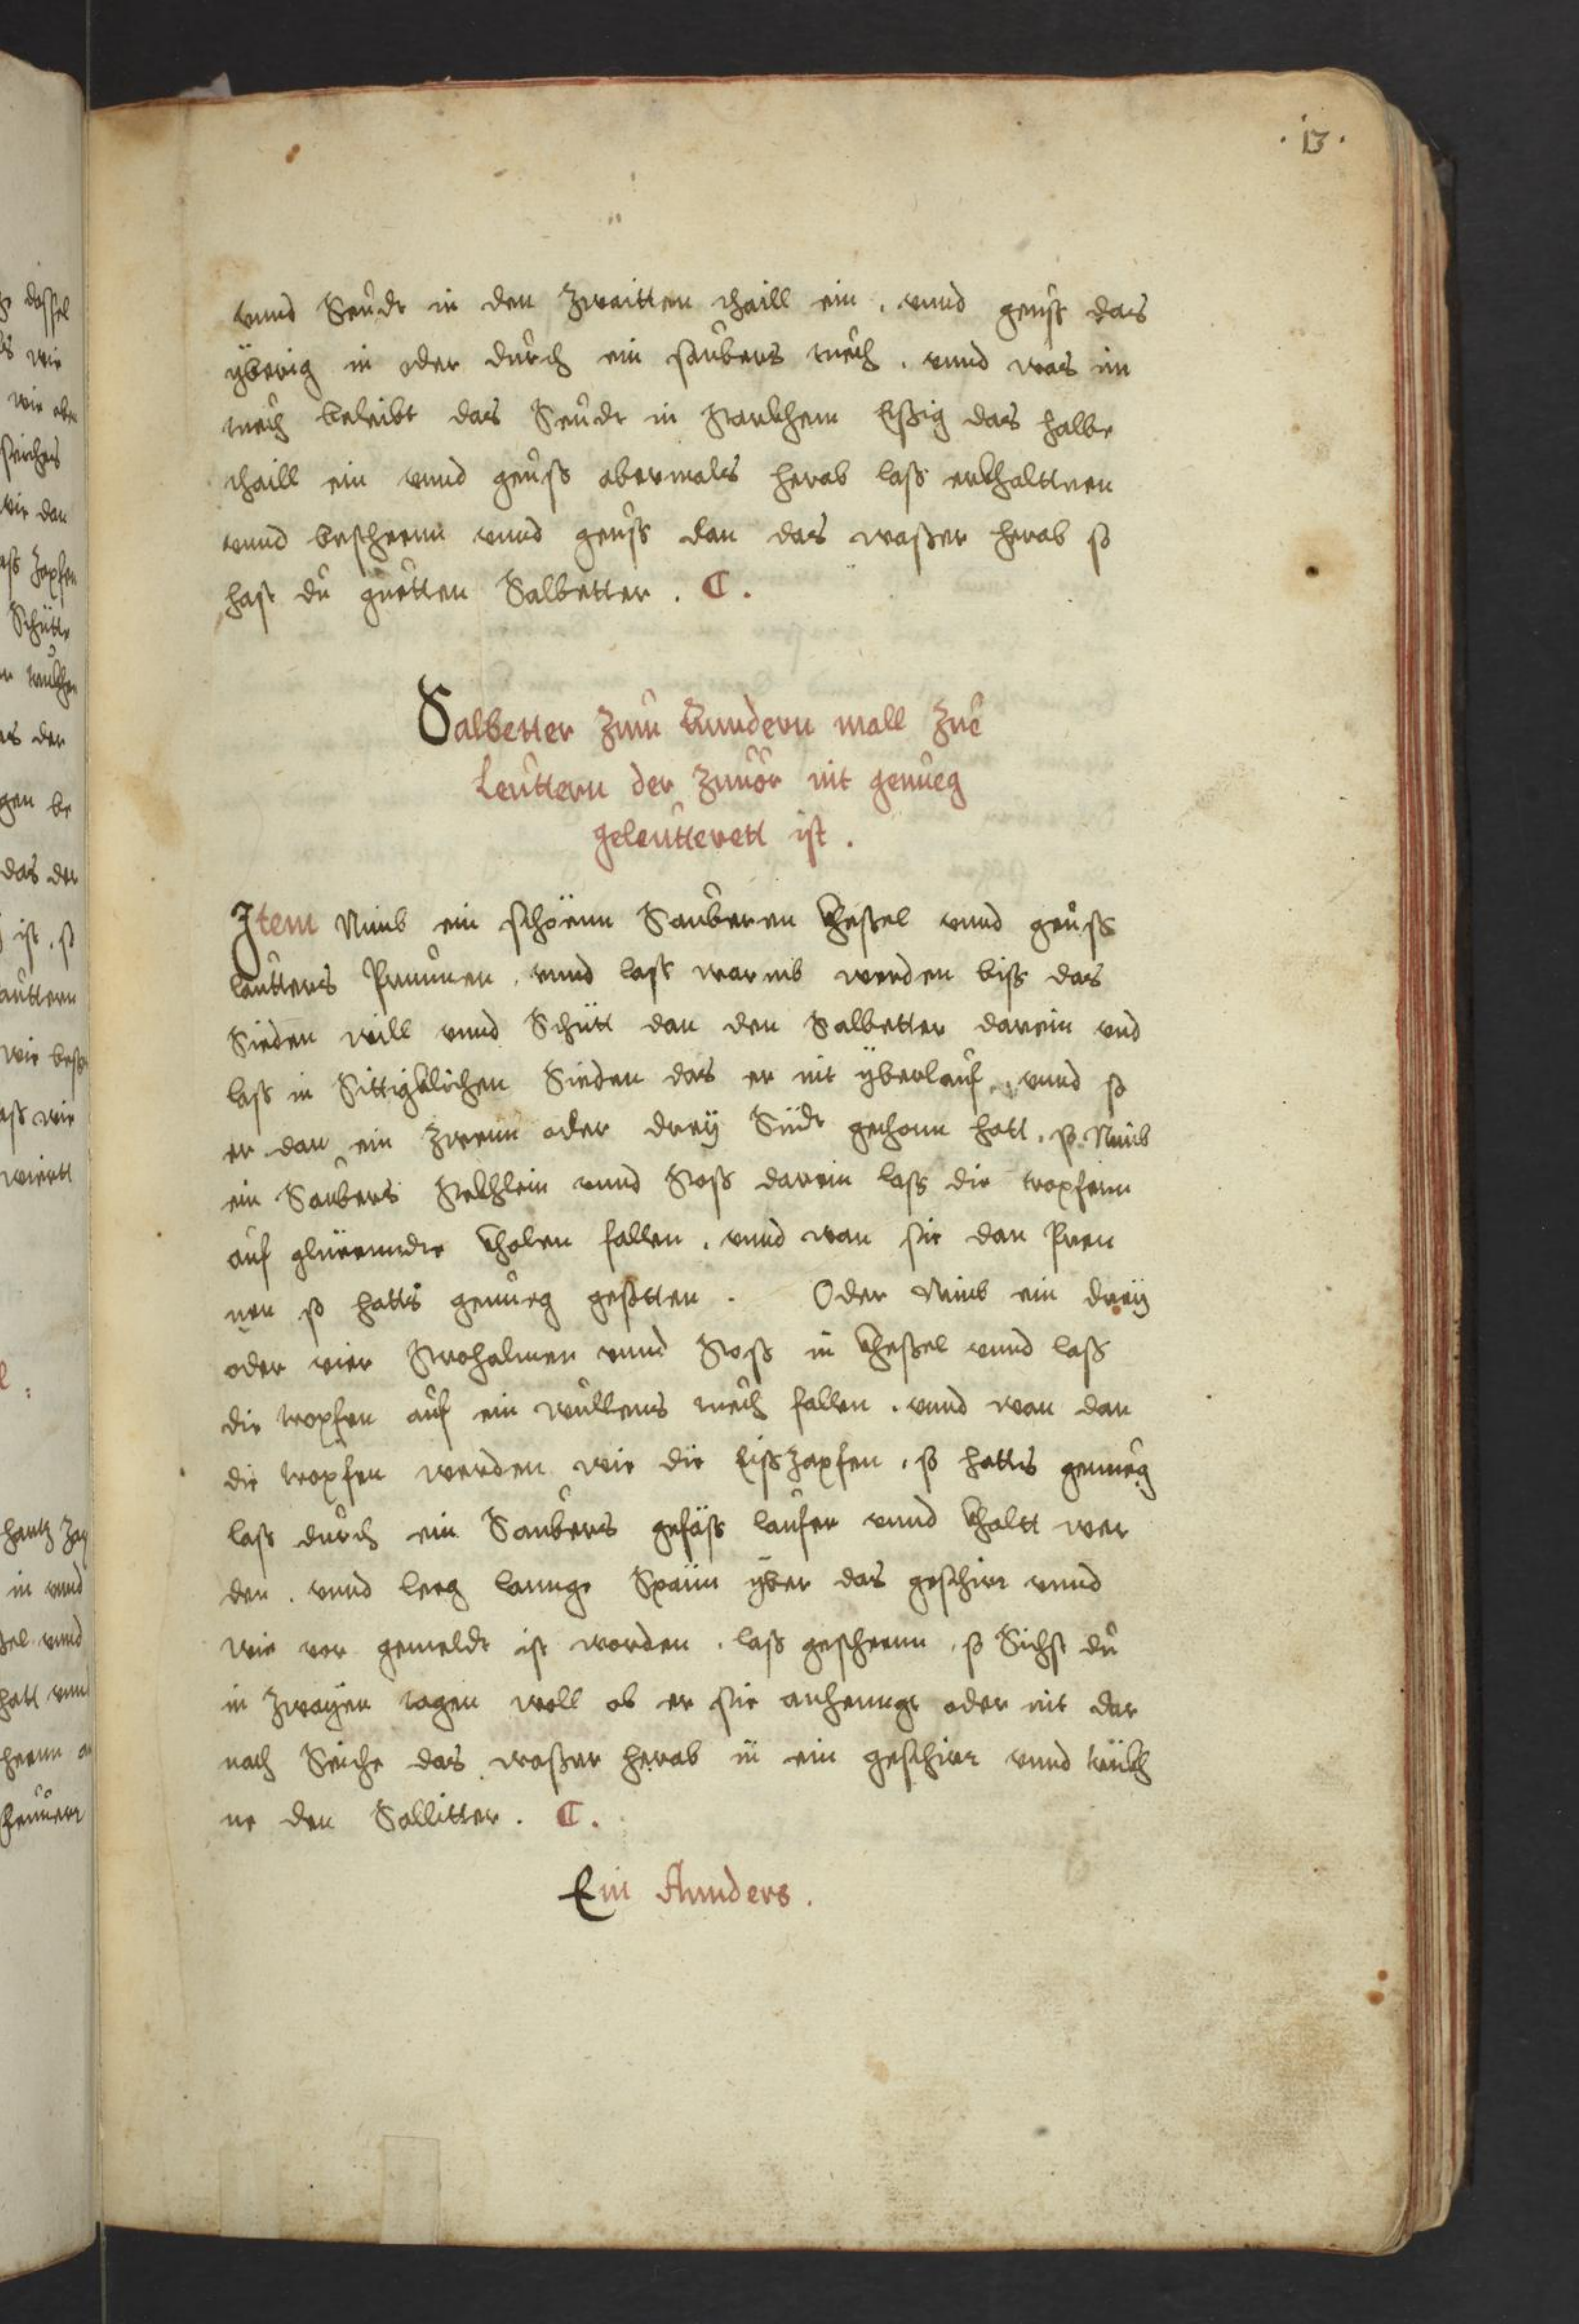 . 13 .
vnnd Seudt in den Zwaitten thaill ein . vnnd geuss das
yberig in oder durch ein saubers tuech . vnnd was im
tuech beleibt das Seudt in starkhem Essig das halbe
thaill ein vnnd geuss abermals herab lass erkhalttnen
vnnd bescheenn vnnd geuss dan das wasser herab so
hast du guetten Salbetter . C .
Salbetter zum Anndern mall zue
Leuttern der zuuor nit genueg
geleutterett ist .
Item Nimb ein schoenn Sauberen khessel vnnd geuss
lautters Prunnen . vnnd lass warmb werden biss das
Sieden will vnnd Schütt dan den Salbetter darein vnd
lass in Sittigklichen Sieden das er nit yberlauf . vnnd so
er dan ein zwenn oder drey Südt gethonn hatt . so Nimb
ein Saubers stekhlein vnnd stoss darein lass die tropfenn
auf glüenndte kholen fallen . vnnd wan sie dan Pren
nen so hatts genueg gesotten . Oder Nimb ein drey
oder vier strohalmen vnnd stoss in khessel vnnd lass
die tropfen auf ein wullens tuech fallen . vnnd wan dan
die tropfen werden wie die Eisszapfen . so hatts genueg
lass durch ein Saubers gefäss laufen vnnd khaltt wer
den . vnnd leeg lannge Spänn yber das geschirr vnnd
wie vor gemeldt ist worden . lass gescheenn . so Sichst du
in zwayen tagen woll ob er sie anhenngt oder nit dar
nach Seiche das wasser herab in ein geschirr vnnd trükh
ne den Sallitter . C .
Ein Annders .